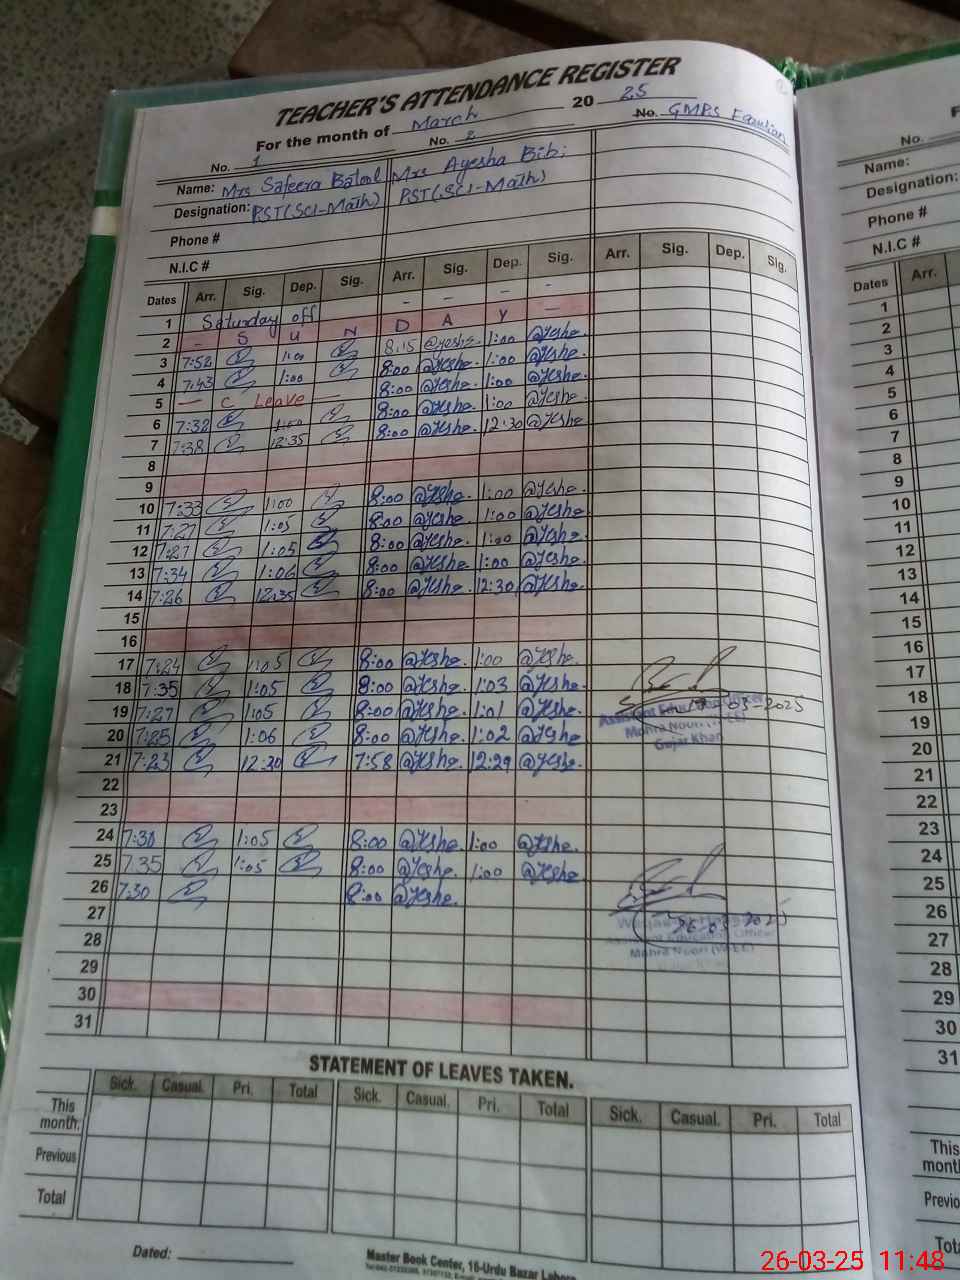 TEACHER'S ATTENDANCE REGISTER
For the month of March 20 25
No. 1 No. 2 No. GMPS
Name: Mrs Safeera Batool Mrs Ayesha Bibi
Designation: PST(SCI-Math) PST(SCI-Math)
Phone #
N.I.C #
Dates Arr. Sig. Dep. Sig. Arr. Sig. Dep. Sig. Arr. Sig. Dep. Sig.
1 Saturday off - - - -
2 - S U N D A Y -
3 7:58 1:00 8:15 @yeshe. 1:00 @yeshe.
4 7:43 1:00 8:00 @yeshe. 1:00 @yeshe.
5 - C Leave - 8:00 @yeshe. 1:00 @yeshe.
6 7:38 1:00 8:00 @yeshe. 1:00 @yeshe.
7 7:38 12:35 8:00 @yeshe. 12:30 @yeshe
8
9
10 7:33 1:00 8:00 @yeshe. 1:00 @yeshe.
11 7:27 1:05 8:00 @yeshe. 1:00 @yeshe.
12 7:27 1:05 8:00 @yeshe. 1:00 @yeshe.
13 7:34 1:06 8:00 @yeshe. 1:00 @yeshe.
14 7:26 12:35 8:00 @yeshe. 12:30 @yeshe.
15
16
17 7:24 1:05 8:00 @yeshe. 1:00 @yeshe.
18 7:35 1:05 8:00 @yeshe. 1:03 @yeshe.
19 7:27 1:05 8:00 @yeshe. 1:01 @yeshe.
20 7:25 1:06 8:00 @yeshe. 1:02 @yeshe
21 7:23 12:30 7:58 @yeshe. 12:29 @yeshe.
22
23
24 7:30 1:05 8:00 @yeshe. 1:00 @yeshe.
25 7:35 1:05 8:00 @yeshe. 1:00 @yeshe.
26 7:30 8:00 @yeshe.
27
28
29
30
31
03-2025
Assistant Education Officer
Mohra Noori (W-EE)
Gujar Khan
26-03-2025
Assistant Education Officer
Mohra Noori (W-EE)
STATEMENT OF LEAVES TAKEN.
Sick. Casual. Pri. Total Sick. Casual. Pri. Total Sick. Casual. Pri. Total
This month.
Previous
Total
Dated:
Master Book Center, 16-Urdu Bazar Lahore
No.
Name:
Designation:
Phone #
N.I.C #
Dates Arr.
1
2
3
4
5
6
7
8
9
10
11
12
13
14
15
16
17
18
19
20
21
22
23
24
25
26
27
28
29
30
31
This
month
26-03-25 11:48